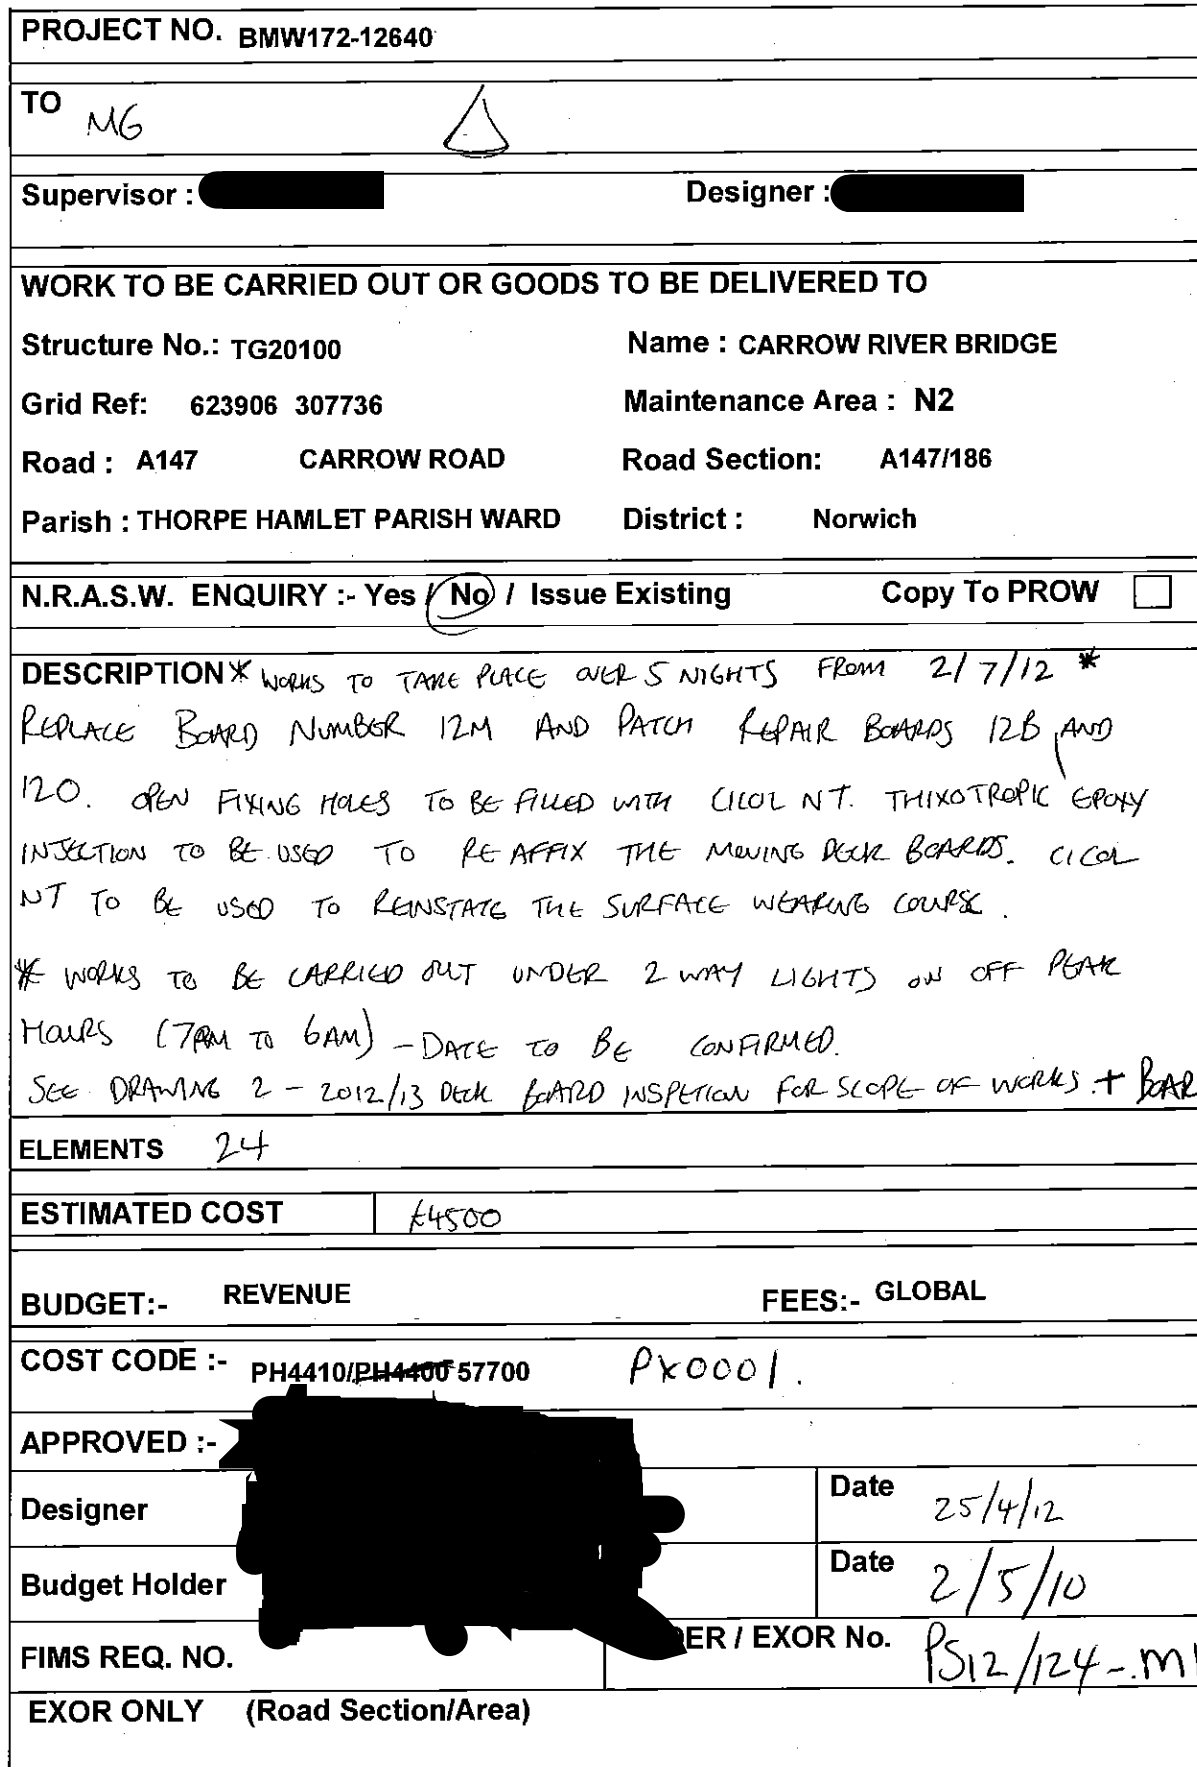 PROJECT NO. BMW172-12640
TO MG
Supervisor : Designer :
WORK TO BE CARRIED OUT OR GOODS TO BE DELIVERED TO
Structure No.: TG20100 Name : CARROW RIVER BRIDGE
Grid Ref: 623906 307736 Maintenance Area : N2
Road : A147 CARROW ROAD Road Section: A147/186
Parish : THORPE HAMLET PARISH WARD District : Norwich
N.R.A.S.W. ENQUIRY :- Yes / No / Issue Existing Copy To PROW
DESCRIPTION * WORKS TO TAKE PLACE OVER 5 NIGHTS FROM 2/7/12 *
REPLACE BOARD NUMBER 12M AND PATCH REPAIR BOARDS 12B AND
12O. OPEN FIXING HOLES TO BE FILLED WITH CICOL NT. THIXOTROPIC EPOXY
INJECTION TO BE USED TO RE AFFIX THE MOVING DECK BOARDS. CICOL
NT TO BE USED TO REINSTATE THE SURFACE WEARING COURSE.
* WORKS TO BE CARRIED OUT UNDER 2 WAY LIGHTS ON OFF PEAK
HOURS (7PM TO 6AM) - DATE TO BE CONFIRMED.
SEE DRAWING 2 - 2012/13 DECK BOARD INSPETION FOR SCOPE OF WORKS. + BOAR
ELEMENTS 24
ESTIMATED COST £4500
BUDGET:- REVENUE FEES:- GLOBAL
COST CODE :- PH4410/PH4400 57700 PX0001.
APPROVED :-
Designer Date 25/4/12
Budget Holder Date 2/5/10
FIMS REQ. NO. ER / EXOR No. PS12/124-.M
EXOR ONLY (Road Section/Area)